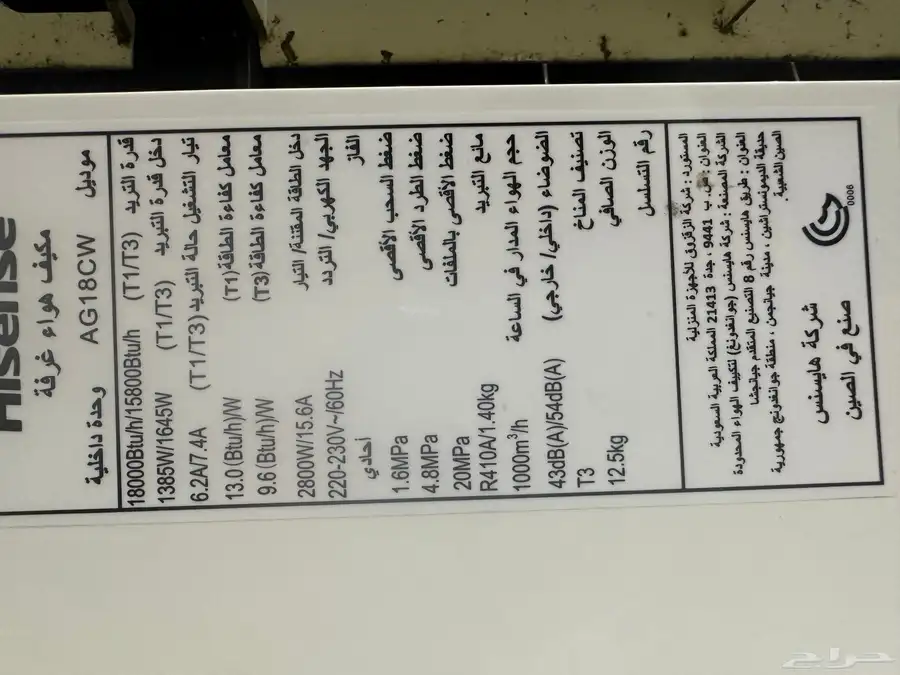 Hisense
مكيف هواء غرفة
موديل AG18CW وحدة داخلية
قدرة التبريد (T1/T3) 18000Btu/h/15800Btu/h
دخل قدرة التبريد (T1/T3) 1385W/1645W
تيار التشغيل حالة التبريد (T1/T3) 6.2A/7.4A
معامل كفاءة الطاقة (T1) 13.0 (Btu/h)/W
معامل كفاءة الطاقة (T3) 9.6 (Btu/h)/W
دخل الطاقة المقننة/ التيار 2800W/15.6A
الجهد الكهربي/ التردد 220-230V~/60Hz
الفاز أحادي
ضغط السحب الأقصى 1.6MPa
ضغط الطرد الأقصى 4.8MPa
ضغط الأقصى بالملفات 20MPa
مائع التبريد R410A/1.40kg
حجم الهواء المدار في الساعة 1000m³/h
الضوضاء (داخلي/ خارجي) 43dB(A)/54dB(A)
تصنيف المناخ T3
الوزن الصافي 12.5kg
رقم التسلسل
المستورد : شركة الزقزوق للأجهزة المنزلية
العنوان : ص ب 9441 ، جدة 21413 المملكة العربية السعودية
الشركة المصنعة : شركة هايسنس (جوانغدونغ) لتكييف الهواء المحدودة
العنوان : طريق هايسنس رقم 8 التصنيع المتقدم جيانجشا
حديقة الديمونستراشين ، مدينة جيانجمن ، منطقة جوانغدونج جمهورية
الصين الشعبية.
0006
شركة هايسنس
صنع في الصين
حراج